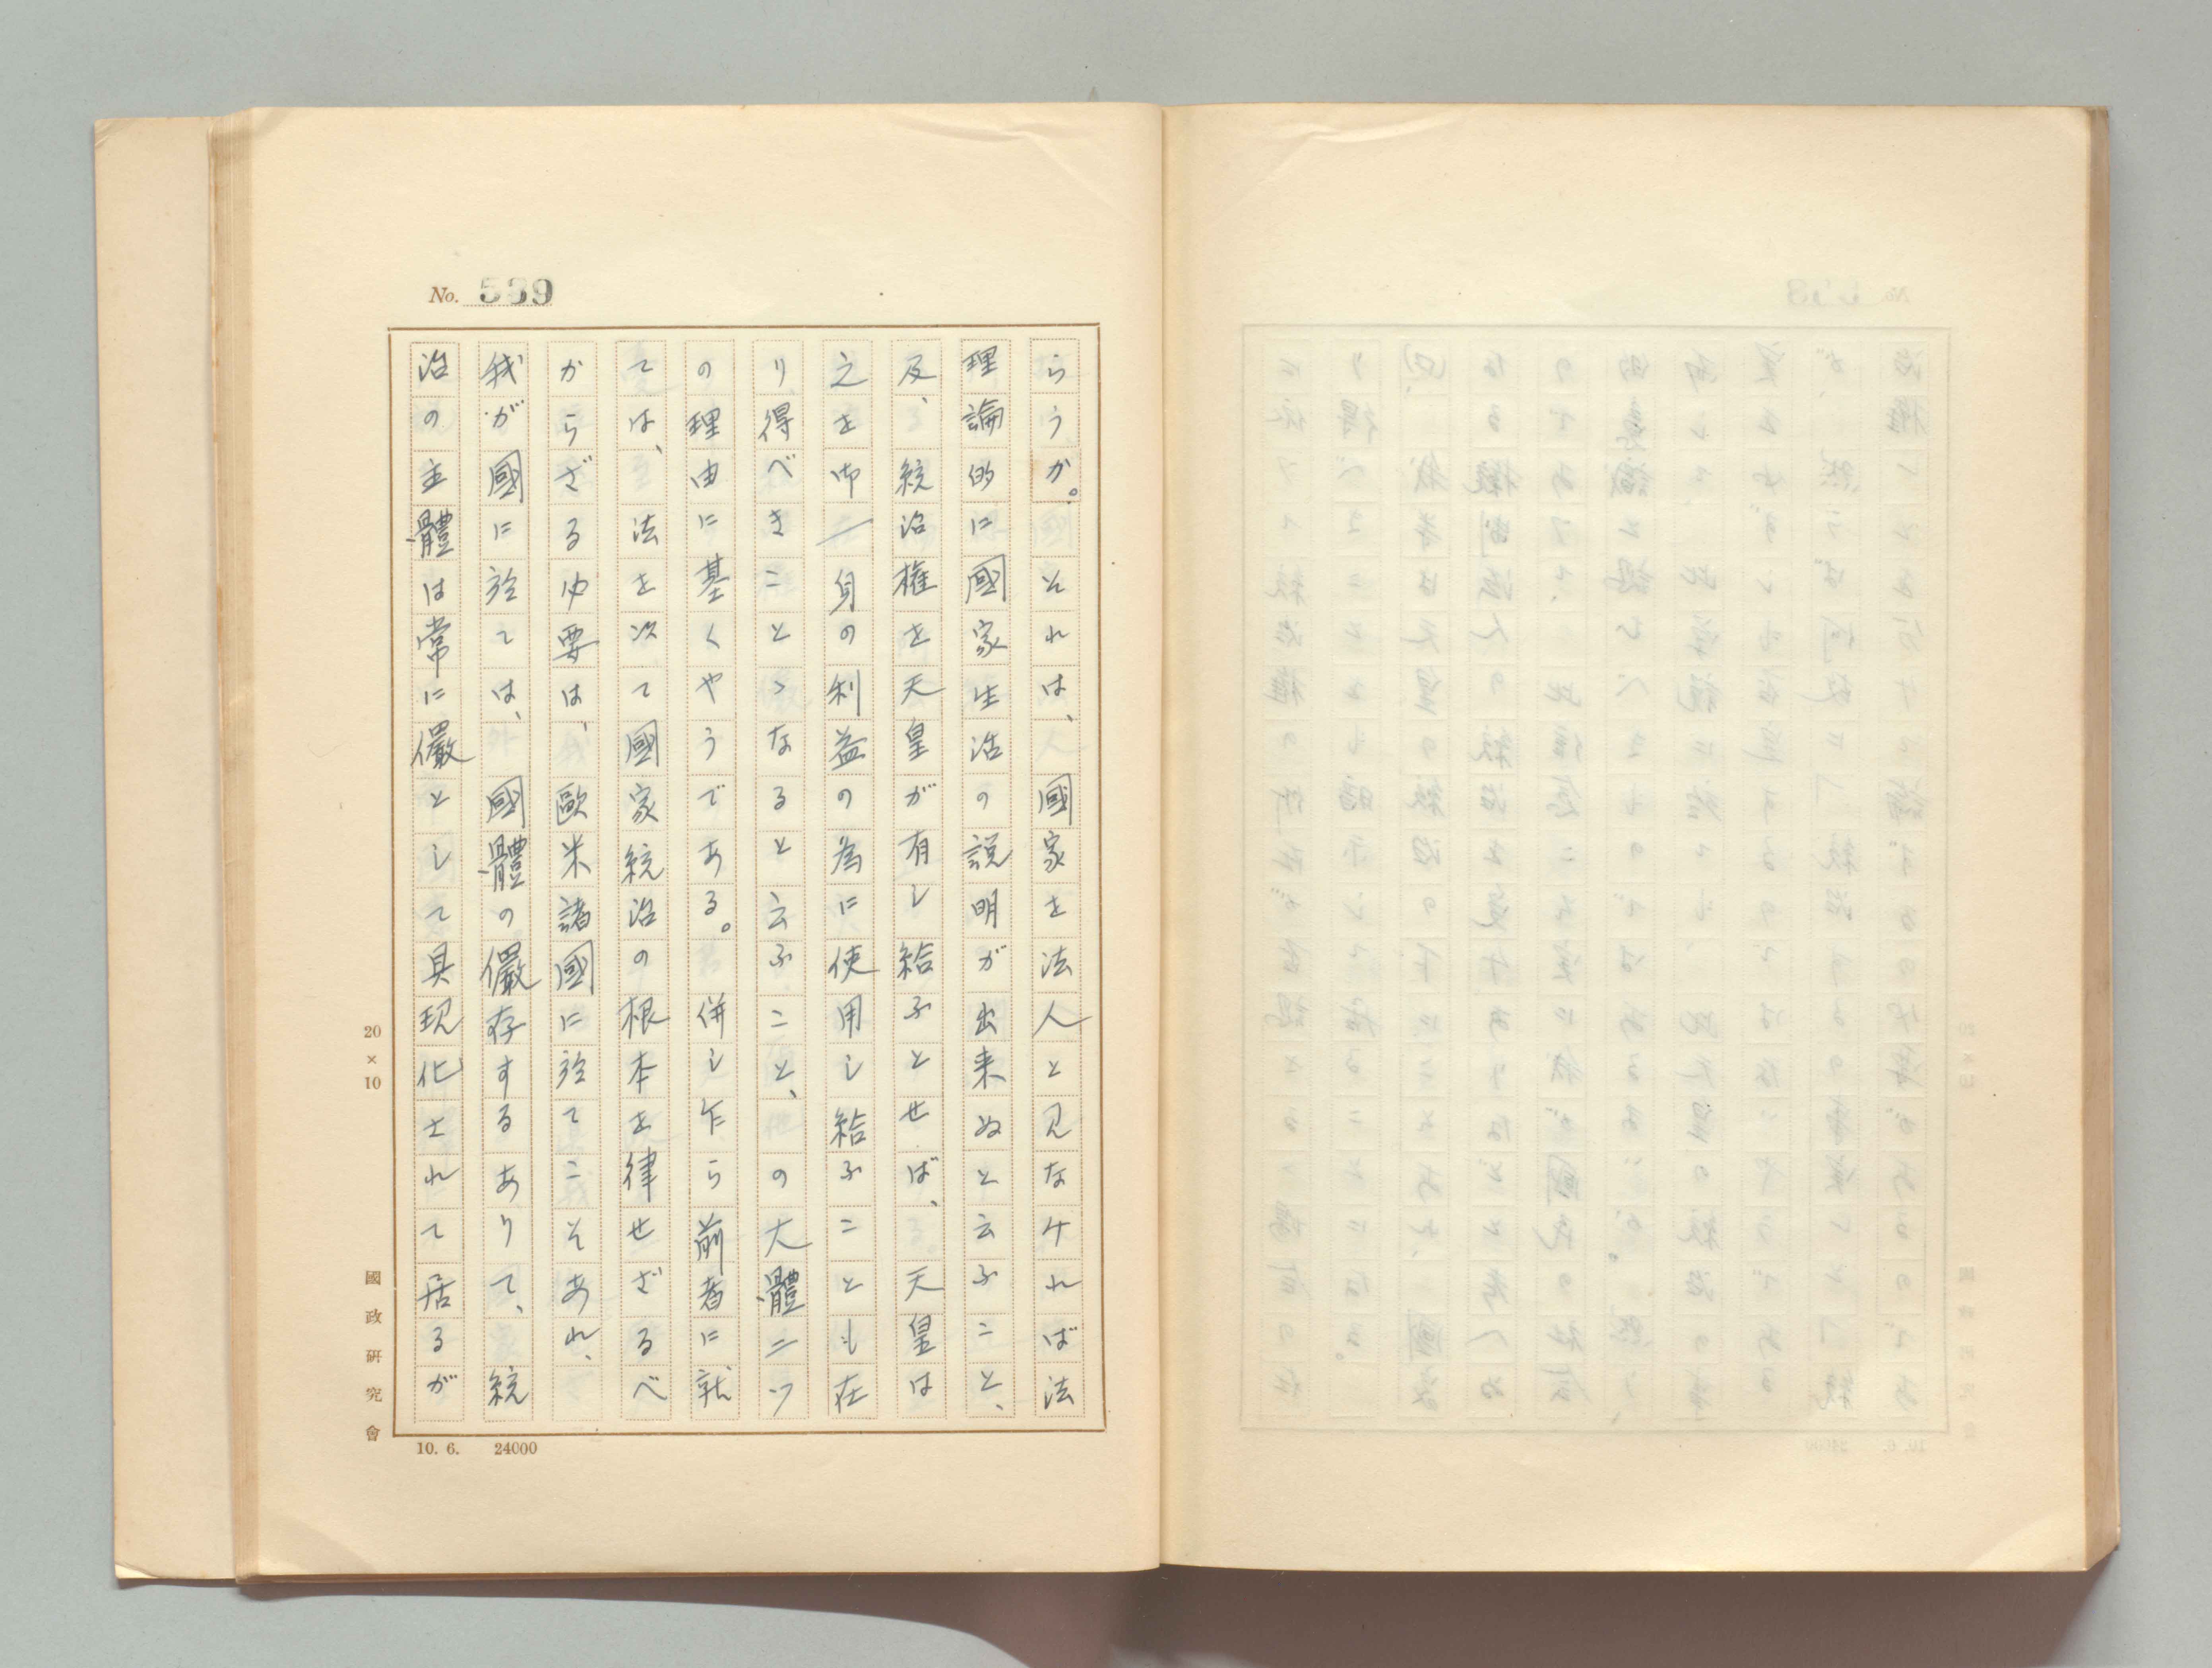 No. 539
らうか。それは、國家を法人と見なケれば法
理論的に國家生活の説明が出来ぬと云ふこと、
及、統治権を天皇が有し給ふとせば、天皇は
之を御一身の利益の為に使用し給ふことも在
り得べきことゝなると云ふこと、の大體二ツ
の理由に基くやうである。併し乍ら前者に就
ては、法を以て國家統治の根本を律せざるべ
からざる必要は、歐米諸國に於てこそあれ、
我が國に於ては、國體の儼存するありて、統
治の主體は常に儼として具現化されて居るが
20×10
國政研究會
10. 6. 24000